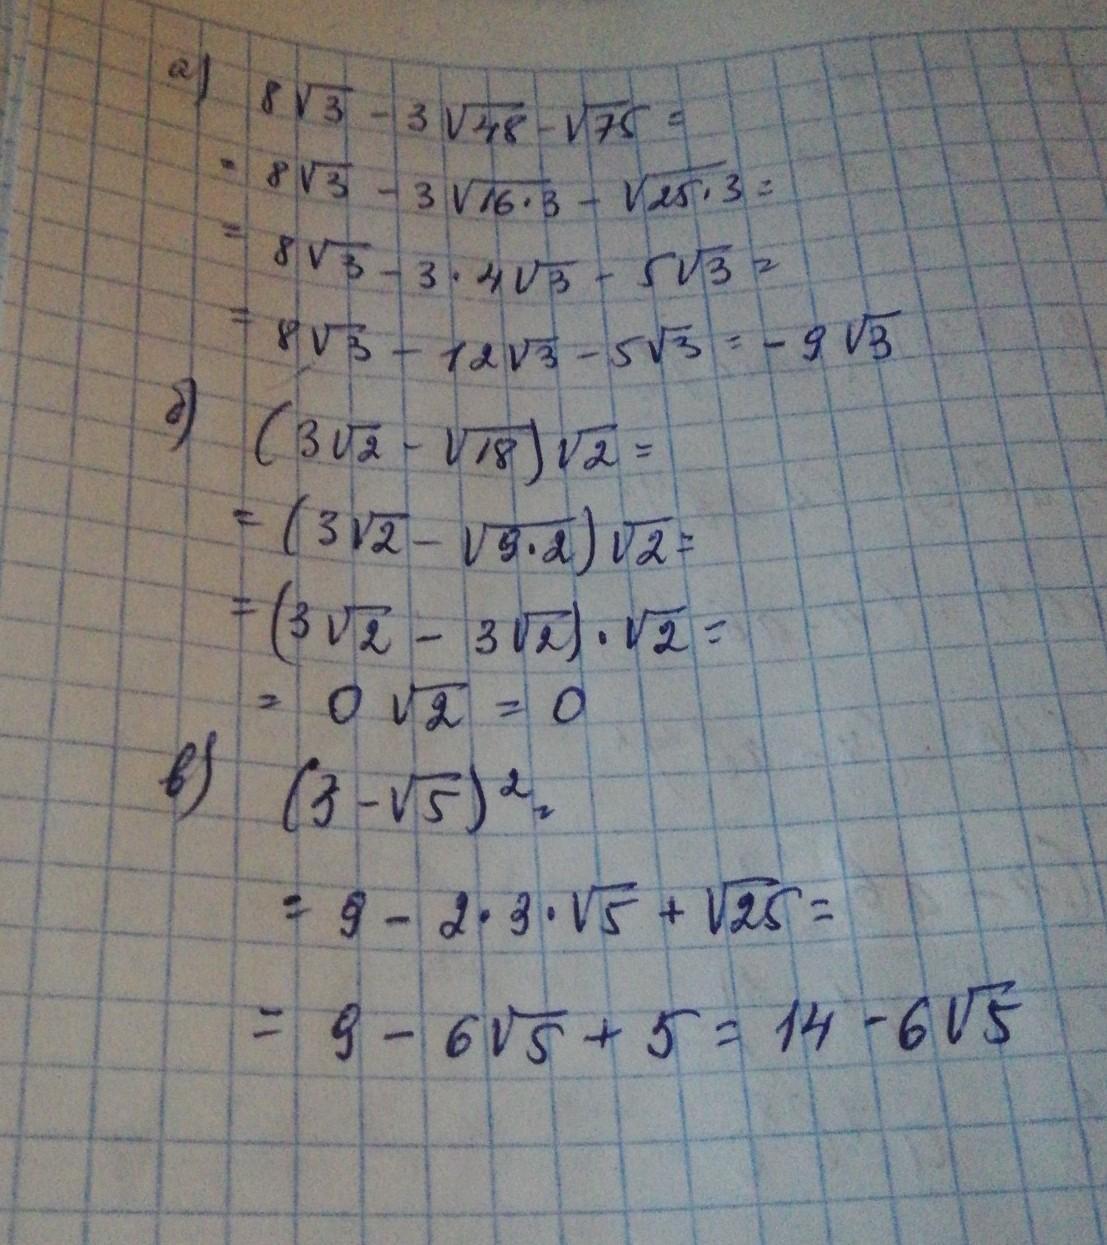 а) 8√3 - 3√48 - √75 =
= 8√3 - 3√16·3 - √25·3 =
= 8√3 - 3·4√3 - 5√3 =
= 8√3 - 12√3 - 5√3 = -9√3
б) (3√2 - √18)√2 =
= (3√2 - √9·2)√2 =
= (3√2 - 3√2)·√2 =
= 0√2 = 0
в) (3 - √5)² =
= 9 - 2·3·√5 + √25 =
= 9 - 6√5 + 5 = 14 - 6√5